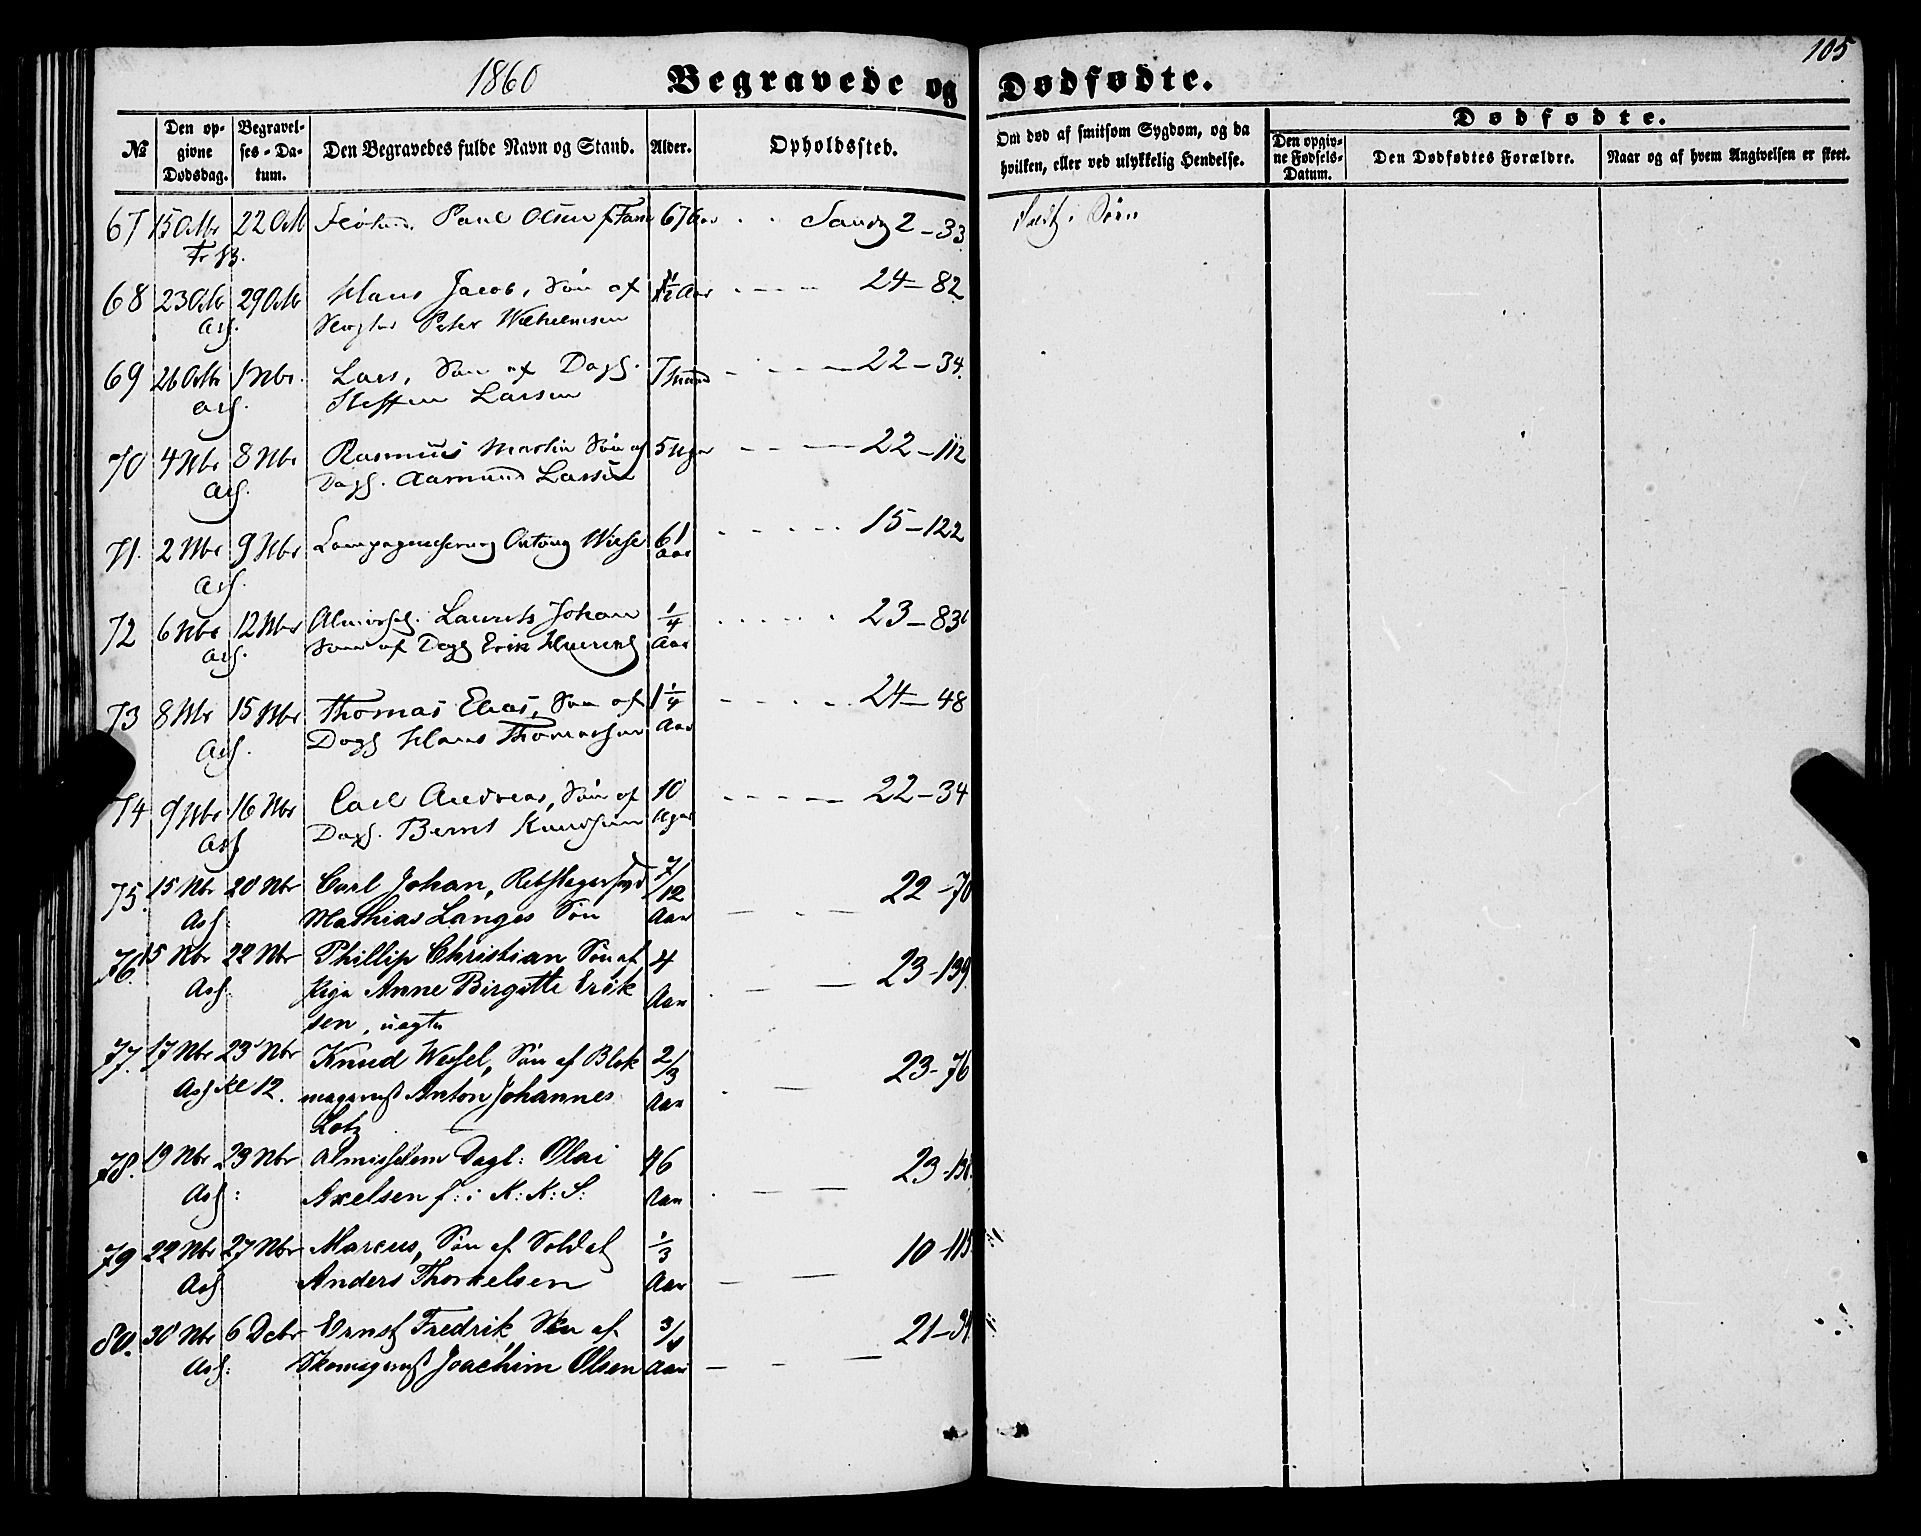 105
1860 Begravede og Dødfødte.
№
Den op-
givne
Dødsdag.
Begravel-
ses-Da-
tum.
Den Begravedes fulde Navn og Stand.
Alder.
Opholdssted.
Om død af smitsom Sygdom, og da
hvilken, eller ved ulykkelig Hendelse.
Dødfødte.
Den opgiv-
ne Fødsels-
Datum.
Den Dødfødtes Forældre.
Naar og af hvem Angivelsen er skeet.
67 15 Octbr 22 Octb Paul Olsen 67 Aar Sandv 2-33 i Søen
68 23 Octb 29 Octb Hans Jacob, Søn af 1½ Aar 24-82
Peter Wilhelmsen
69 26 Octbr 1 Nbr. Lars, Søn af Dagl. 7 Maand 22-34.
Steffen Larsen
70 4 Nbr 8 Nbr Rasmus Martin Søn af 5 Uger 22-112
Dagl. Aamund Larsen
71. 2 Nbr 9 Nbr Wiese 61 Aar 15-122
72 6 Nbr 12 Nbr Laurits Johan ¼ Aar 23-83
Søn af Dagl Erik
73 8 Nbr 15 Nbr Thomas Elias, Søn af 1¼ Aar 24-48
Dagl Hans Thomassen
74 9 Nbr 16 Nbr Carl Andreas, Søn af 10 Uger 22-34
Dagl. Bernt Knudsen
75. 15 Nbr 20 Nbr Carl Johan, Rebslagersvd 7/12 Aar 22-70
Mathias Langes Søn
76. 15 Nbr 22 Nbr Phillip Christian Søn af 4 Aar 23-139
Pige Anne Birgitte Erik
sen, uægte
77. 17 Nbr 23 Nbr Knud Wessel, Søn af Blok 2/3 Aar 23-76
Kl 12. magermst Anton Johannes
Lotz
78. 19 Nbr 23 Nbr Almisselem Dagl: Olai 46 Aar
Axelsen f: i K: K: S:
79 22 Nbr 27 Nbr Marcus, Søn af Soldat 1/3 Aar 10-115
Anders Thorkelsen
80. 30 Nbr 6 Dcbr Ernst Fredrik, Søn af Aar
Skomagermst Joachim Olsen